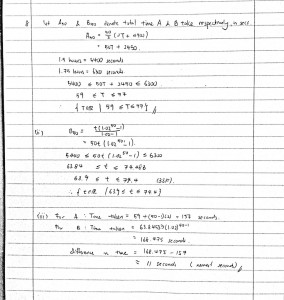 8 let A50 & B50 denote total time A & B take respectively, in secs.
A50 = 50/2 (2T + 49(2))
= 50T + 2450.
1.5 hours = 5400 seconds
1.75 hours = 6300 seconds
5400 ≤ 50T + 2450 ≤ 6300
59 ≤ T ≤ 77
{T∈ℝ | 59 ≤ T ≤ 77}
(ii) B50 = t(1.02^50 - 1) / (1.02 - 1)
= 50t (1.02^50 - 1).
5400 ≤ 50t (1.02^50 - 1) ≤ 6300
63.84 ≤ t ≤
63.9 ≤ t ≤ (3SF).
∴ {t∈ℝ |
(iii) For A : Time taken = 59 + (50-1)(2) = 157 seconds.
For B : Time taken = (1.02)^50-1
= 168.475 seconds.
difference in time = 168.475 - 157
= 11 seconds (nearest second)